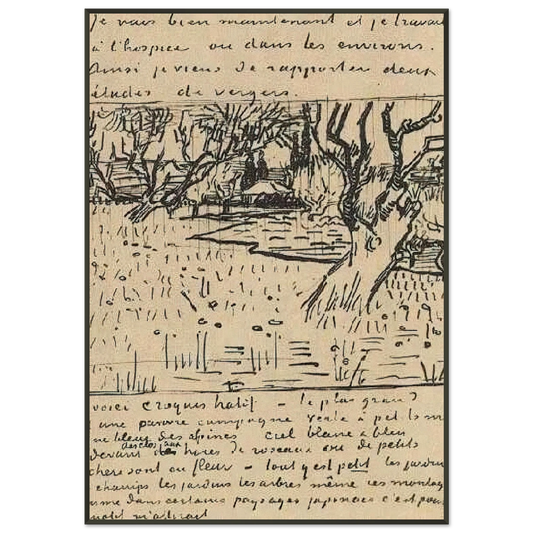 je vais bien maintenant et je travaille
à l'hospice ou dans les environs.
Ainsi je viens de rapporter deux
études de vergers.
voici croquis hatif – le plus grand
une pauvre campagne verte à petits m
ne bleue des alpines ciel blanc & bleu
devant des clos aux haies de roseaux où de petits
chers sont en fleur – tout y est petit les jardins
champs les jardins les arbres même ces montag
mme dans certains paysages japonais c'est pour
motif m'attirait